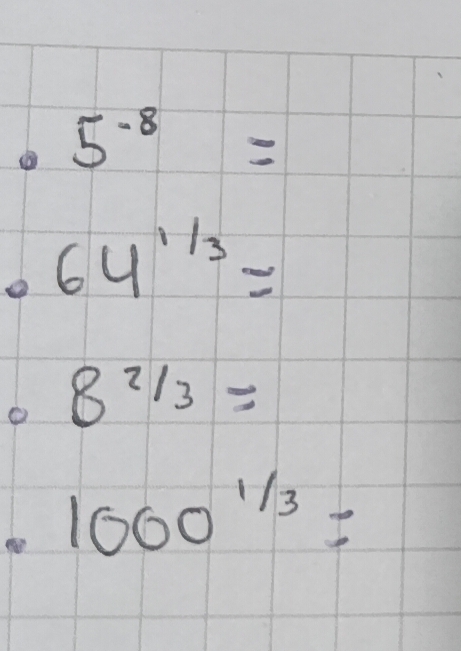 • 5⁻⁸ =
• 64^1/3 =
• 8^2/3 =
• 1000^1/3 =